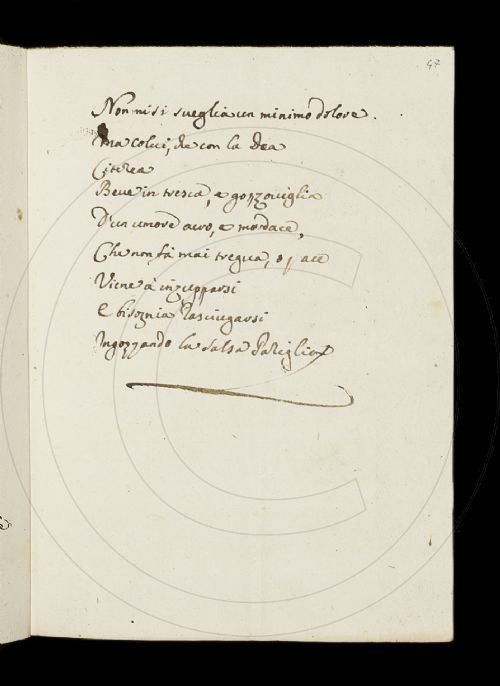 47
Non mi si sveglia un minimo dolore.
Ma colui, che con la Dea
Citerea
Beve in tresca, e gozzoviglia
D'un umore acro, e mordace,
Che non fà mai tregua, o pace
Viene à inzupparsi
E bisognia Rasciugarsi
Ingozzando la salsa Pariglia